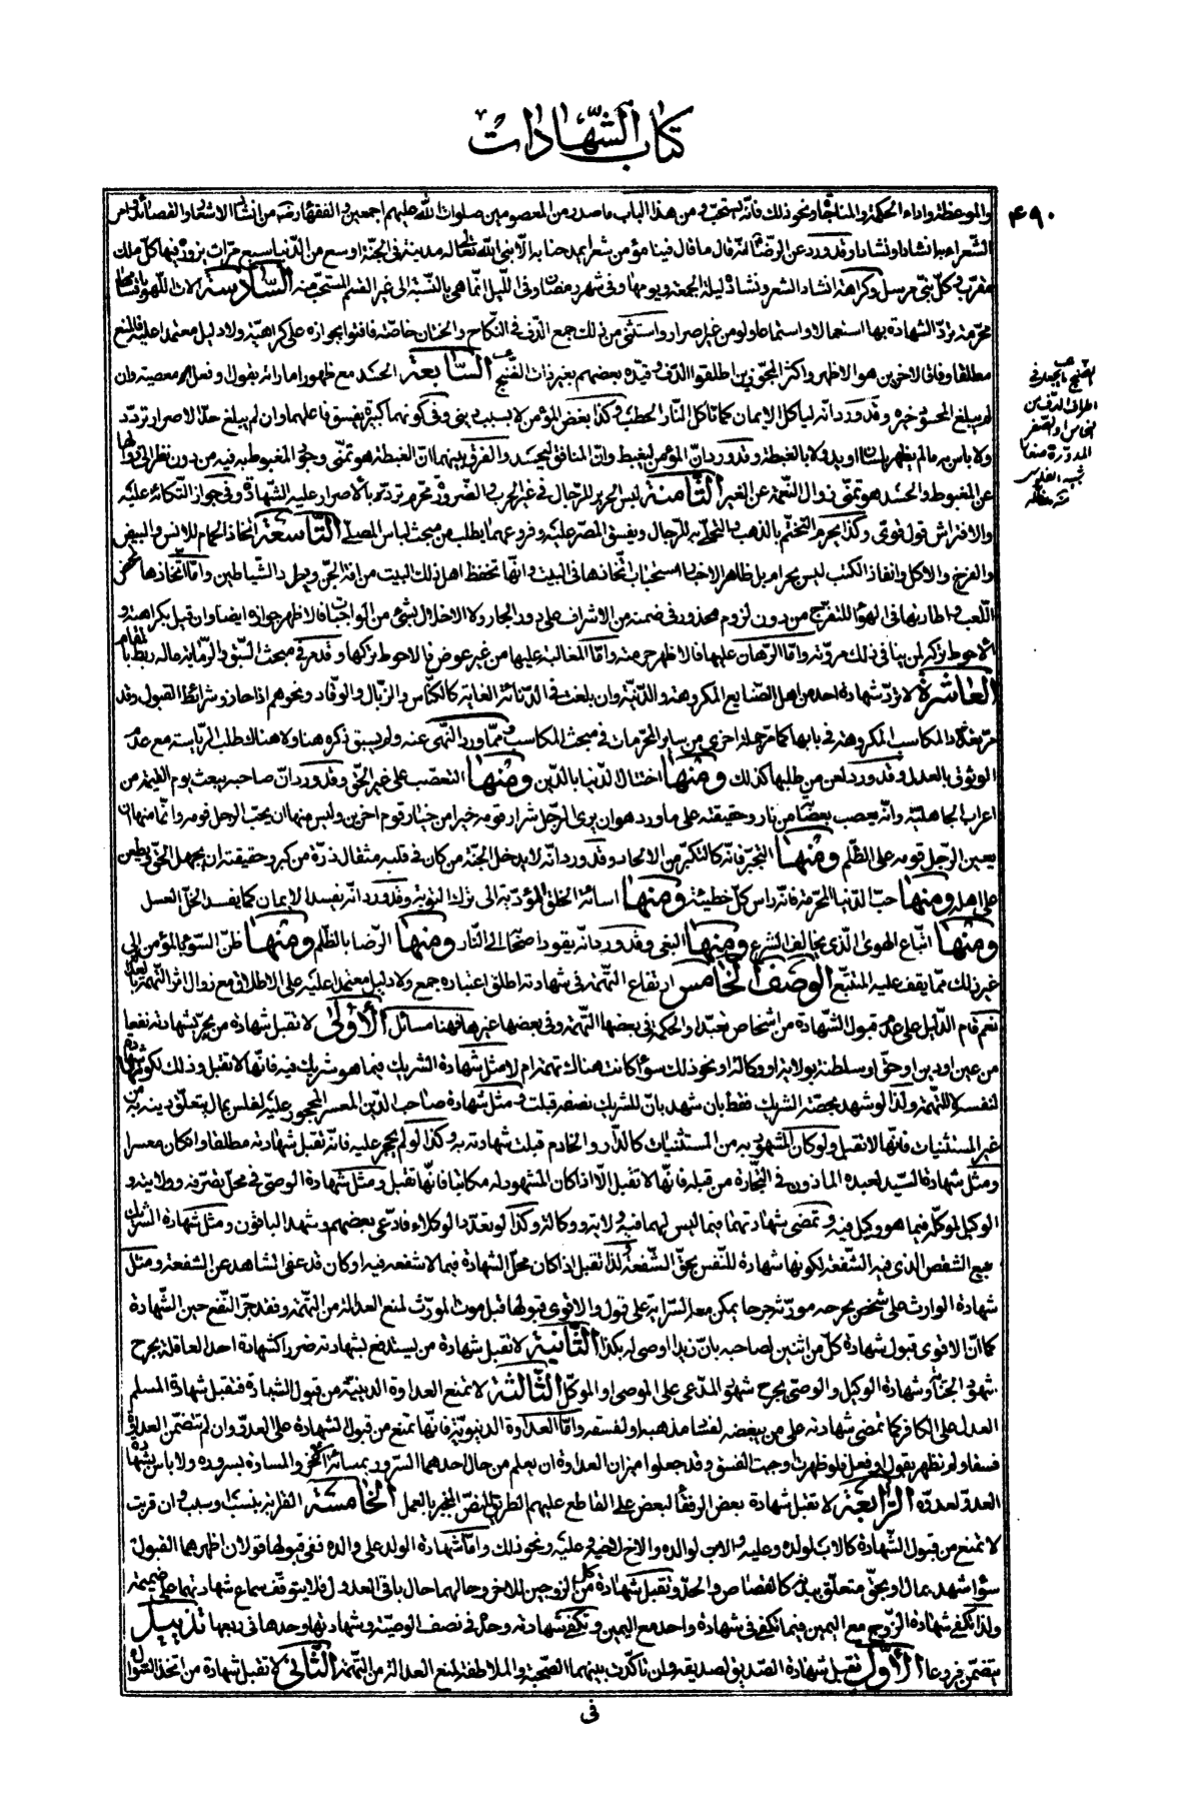 كتاب الشهادات
۴۹۰
والموعظة واداء الحكمة والمناجاة ونحو ذلك فانه يستحب ومن هذا الباب ما صدر من المعصومين صلوات الله عليهم اجمعين والفقهاء رضه من انشاء الاشعار والقصائد وامر
الشعراء بها انشادا ونشادا وقد ورد عن الرضا انه قال ما قال فينا مؤمن شعرا يمدحنا به الا بنى الله تعالى له مدينة في الجنة اوسع من الدنيا سبع مرات يزوره فيها كل ملك
مقرب وكل نبي مرسل وكراهة انشاد الشعر ونشاده ليلة الجمعة ويومها وفي شهر رمضان وفي الليل انما هي بالنسبة الى غير القسم المستحب منه السادسة الات اللهو باقسامها
محرمة يرد الشهادة بها استعمالا واستماعا ولو من غير اصرار واستثنى من ذلك جمع الدف في النكاح والختان خاصة فافتوا بجوازه على كراهية ولا دليل معتمد اعليه فالمنع
مطلقا وفاقا لاخرين هو الاظهر واكثر المجوزين اطلقوا الدف وقيده بعضهم بغير ذات الصنج السابعة الحسد مع ظهور اماراته بقول او فعل معصية وان
لم يبلغ المحسود خبره وقد ورد انه لياكل الايمان كما تاكل النار الحطب وكذا بغض المؤمن لا بسبب ديني وفي كونهما كبيرة يفسق فاعلهما وان لم يبلغ حد الاصرار تردد
ولا باس به ما لم يظهر بلسان او يد ولا بالغبطة وقد ورد ان المؤمن يغبط وان المنافق ليحسد والفرق بينهما ان الغبطة هو تمني وجود المغبوط به فيه من دون نظر الى زوالها
عن المغبوط والحسد هو تمني زوال النعمة عن الغير الثامنة لبس الحرير للرجال في غير الحرب والضرورة محرم ترد به بالاصرار عليه الشهادة وفي جواز التكائة عليه
والافتراش قول قوي وكذا يحرم التختم بالذهب والتحلي به للرجال ويفسق المصر عليه وفروعهما يطلب من مبحث لباس المصلي التاسعة اتخاذ الحمام للانس والبيض
والفرخ والاكل وانفاذ الكتب ليس بحرام بل ظاهر الاخبار استحباب اتخاذها في البيت وانها تحفظ اهل ذلك البيت من افة الجن وبدل الشياطين واما اتخاذها لمحض
اللعب واطارتها في الهواء للتفرج من دون لزوم محذور في ضمنه من الاشراف على دور الجار ولا الاخلال بشيء من الواجبات فالاظهر جوازه ايضا وان قيل بكراهته و
الاحوط تركه لمن ينافي ذلك مروته واما الرهان عليها فالاظهر حرمته واما المغالبة عليها من غير عوض فالاحوط تركها وقد مر في مبحث السبق والرماية ماله ربط بالمقام
العاشرة لا ترد شهادة احد من اهل الصنايع المكروهة والدنية وان بلغت في الدنائة الغاية كالكناس والزبال والوقاد ونحوهم اذا حازوا شرائط القبول وقد
مر تعداد المكاسب المكروهة في بابها كما مر جملة اخرى من ساير المحرمات في مبحث المكاسب ومما ورد النهي عنه ولم يسبق ذكره هنا ولا هناك طلب الرياسة مع عدم
الوثوق بالعدل وقد ورد لعن من طلبها كذلك ومنها اختتال الدنيا بالدين ومنها التعصب على غير الحق وقد ورد ان صاحبه يبعث يوم القيمة من
اعراب الجاهلية وانه يعصب بعصابة من نار وحقيقته على ما ورد هو ان يرى الرجل شرار قومه خيرا من خيار قوم اخرين وليس منها ان يحب الرجل قومه وانما منها ان
يعين الرجل قومه على الظلم ومنها التجبر فانه كالتكبر من الالحاد وقد ورد انه لا يدخل الجنة من كان في قلبه مثقال ذرة من كبر وحقيقته ان يجهل الحق ويطعن
على اهله ومنها حب الدنيا المحرمة فانه راس كل خطيئة ومنها اسائة الخلق المؤدية الى ترك التوبة وقد ورد انه يفسد الايمان كما يفسد الخل العسل
ومنها اتباع الهوى الذي يخالف الشرع ومنها البغي وقد ورد انه يقود اصحابه الى النار ومنها الرضا بالظلم ومنها ظن السوء بالمؤمن الى
غير ذلك مما يقف عليه المتتبع الوصف الخامس ارتفاع التهمة في شهادته اطلق اعتباره جمع ولا دليل معتمدا عليه على الاطلاق مع زوال اثر التهمة بالعدالة
نعم قام الدليل على عدم قبول الشهادة من اشخاص تعبدا والحكمة في بعضها التهمة وفي بعضها غيرها فهنا مسائل الاولى لا تقبل شهادة من يجر بشهادته نفعا
من عين او دين او حق او سلطنة بولاية او وكالة او نحو ذلك سواء كانت هناك تهمة ام لا مثل شهادة الشريك فيما هو شريك فيه فانها لا تقبل وذلك لكونها شهادة
لنفسه لا للتهمة ولذا لو شهد بحصة الشريك فقط بان شهد بان للشريك نصفه قبلت ومثل شهادة صاحب الدين المعسر المحجور عليه لفلس بمال يتعلق دينه به من
غير المستثنيات فانها لا تقبل ولو كان المشهود به من المستثنيات كالدار والخادم قبلت شهادته به وكذا لو لم يحجر عليه فانه تقبل شهادته مطلقا وان كان معسرا
ومثل شهادة السيد لعبده الماذون في التجارة من قبله فانها لا تقبل الا اذا كان المشهود له مكاتبا فانها تقبل ومثل شهادة الوصي في محل تصرفه وولايته و
الوكيل لموكله فيما هو وكيل فيه وتمضي شهادتهما فيما ليس لهما فيه ولاية ووكالة وكذا لو تعدد الوكلاء فادعى بعضهم وشهد الباقون ومثل شهادة الشريك
ببيع الشقص الذي فيه الشفعة لكونها شهادة للنفس بحق الشفعة ولذا تقبل اذا كان محل الشهادة فيما لا شفعة فيه او كان قد عفى الشاهد عن الشفعة ومثل
شهادة الوارث على شخص بجرحه مورثه جرحا يمكن معه السراية على قول والاقوى قبولها قبل موت المورث لمنع العدالة من التهمة وفقد جر النفع حين الشهادة
كما ان الاقوى قبول شهادة كل من اثنين لصاحبه بان زيدا اوصى له بكذا الثانية لا تقبل شهادة من يستدفع بشهادته ضررا كشهادة احد العاقلة بجرح
شهود الجناية وشهادة الوكيل والوصي بجرح شهود المدعي على الموصي او الموكل الثالثة لا تمنع العداوة الدينية من قبول الشهادة فتقبل شهادة المسلم
العدل على الكافر كما تمضي شهادته على من يبغضه لفساد مذهبه او لفسقه واما العداوة الدنيوية فانها تمنع من قبول الشهادة على العدو وان لم تتضمن العداوة
فسقا ولو تظهر بقول او فعل فلو ظهرت اوجبت الفسق وقد جعلوا ميزان العداوة ان يعلم من حال احدهما السرور بمسائة الاخر والمسائة بسروره ولا باس بشهادة
العدو لعدوه الرابعة لا تقبل شهادة بعض الرفقاء لبعض على القاطع عليهم الطريق للنص المنجبر بالعمل الخامسة القرابة بنسب او سبب وان قربت
لا تمنع من قبول الشهادة كالاب لولده وعليه والابن لوالده والاخ لاخيه وعليه ونحو ذلك واما شهادة الولد على والده ففي قبولها قولان اظهرهما القبول
سواء شهد بمال او بحق متعلق ببدنه كالقصاص والحد وتقبل شهادة كل من الزوجين للاخر وحالهما حال باقي العدول فلا يتوقف سماع شهادتهما على ضميمة
ولذا تكفي شهادة الزوج مع اليمين فيما تكفي فيه شهادة واحد مع اليمين وتكفي شهادته وحده في نصف الوصية وشهادتها وحدها في ربعها تذييل
يتضمن فروعا الاول تقبل شهادة الصديق لصديقه وان تاكدت بينهما الصحبة والملاطفة لمنع العدالة من التهمة الثاني لا تقبل شهادة من اتخذ السؤال
في